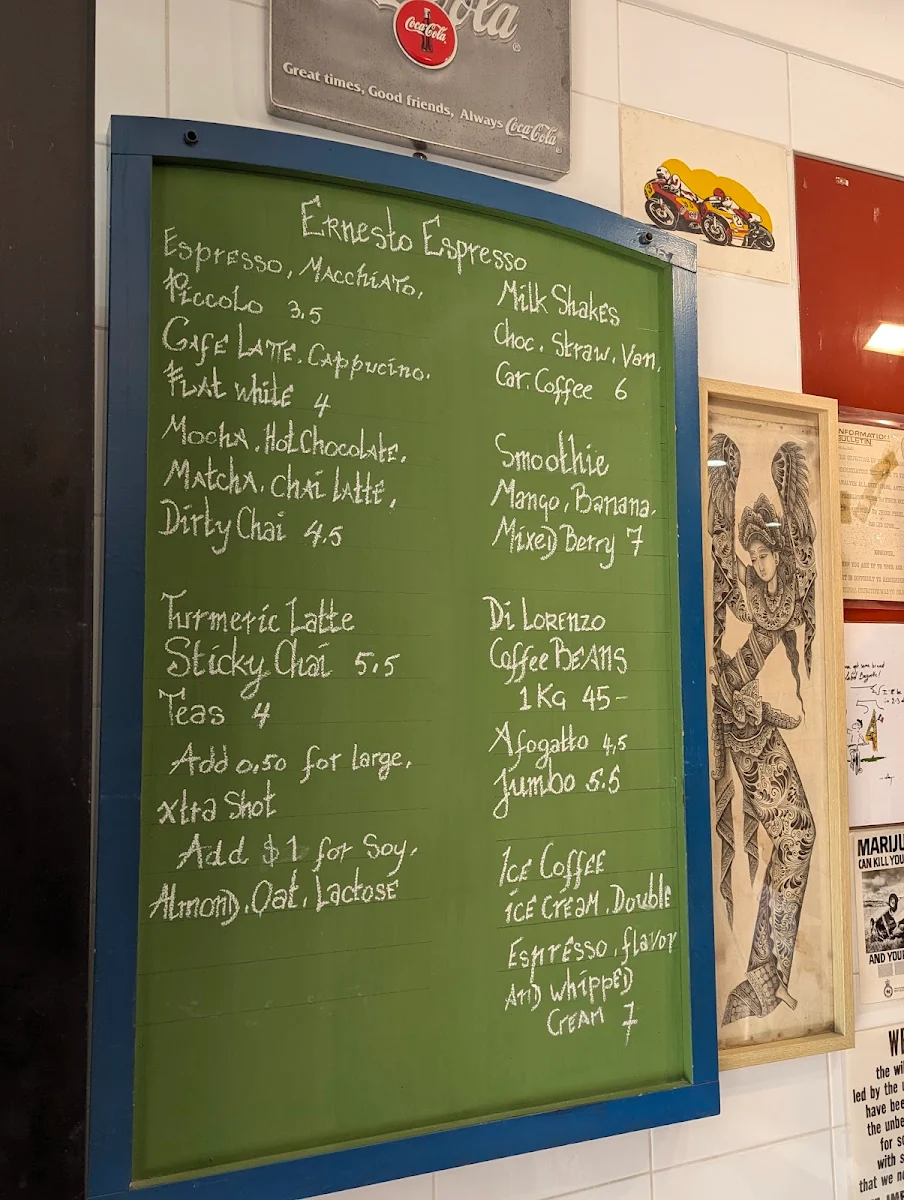 Cola
Coca-Cola
Great times, Good friends, Always Coca-Cola
Ernesto Espresso
Espresso, Macchiato,
Piccolo 3.5
Cafe Latte, Cappucino.
Flat white 4
Mocha, Hot Chocolate,
Matcha, Chai Latte,
Dirty Chai 4.5
Turmeric Latte
Sticky Chai 5.5
Teas 4
Add 0.50 for large,
xtra Shot
Add $1 for Soy,
Almond, Oat, Lactose
Milk Shakes
Choc. Straw. Van.
Car. Coffee 6
Smoothie
Mango, Banana,
Mixed Berry 7
Di Lorenzo
Coffee Beans
1Kg 45-
Afogatto 4.5
Jumbo 5.5
Ice Coffee
ice cream, Double
Espresso, flavor
and whipped
Cream 7
INFORMATION
BULLETIN
MARIJU
CAN KILL YOU
AND YOUR
WE
the wil
led by the u
have bee
the unbe
for so
with s
that we no